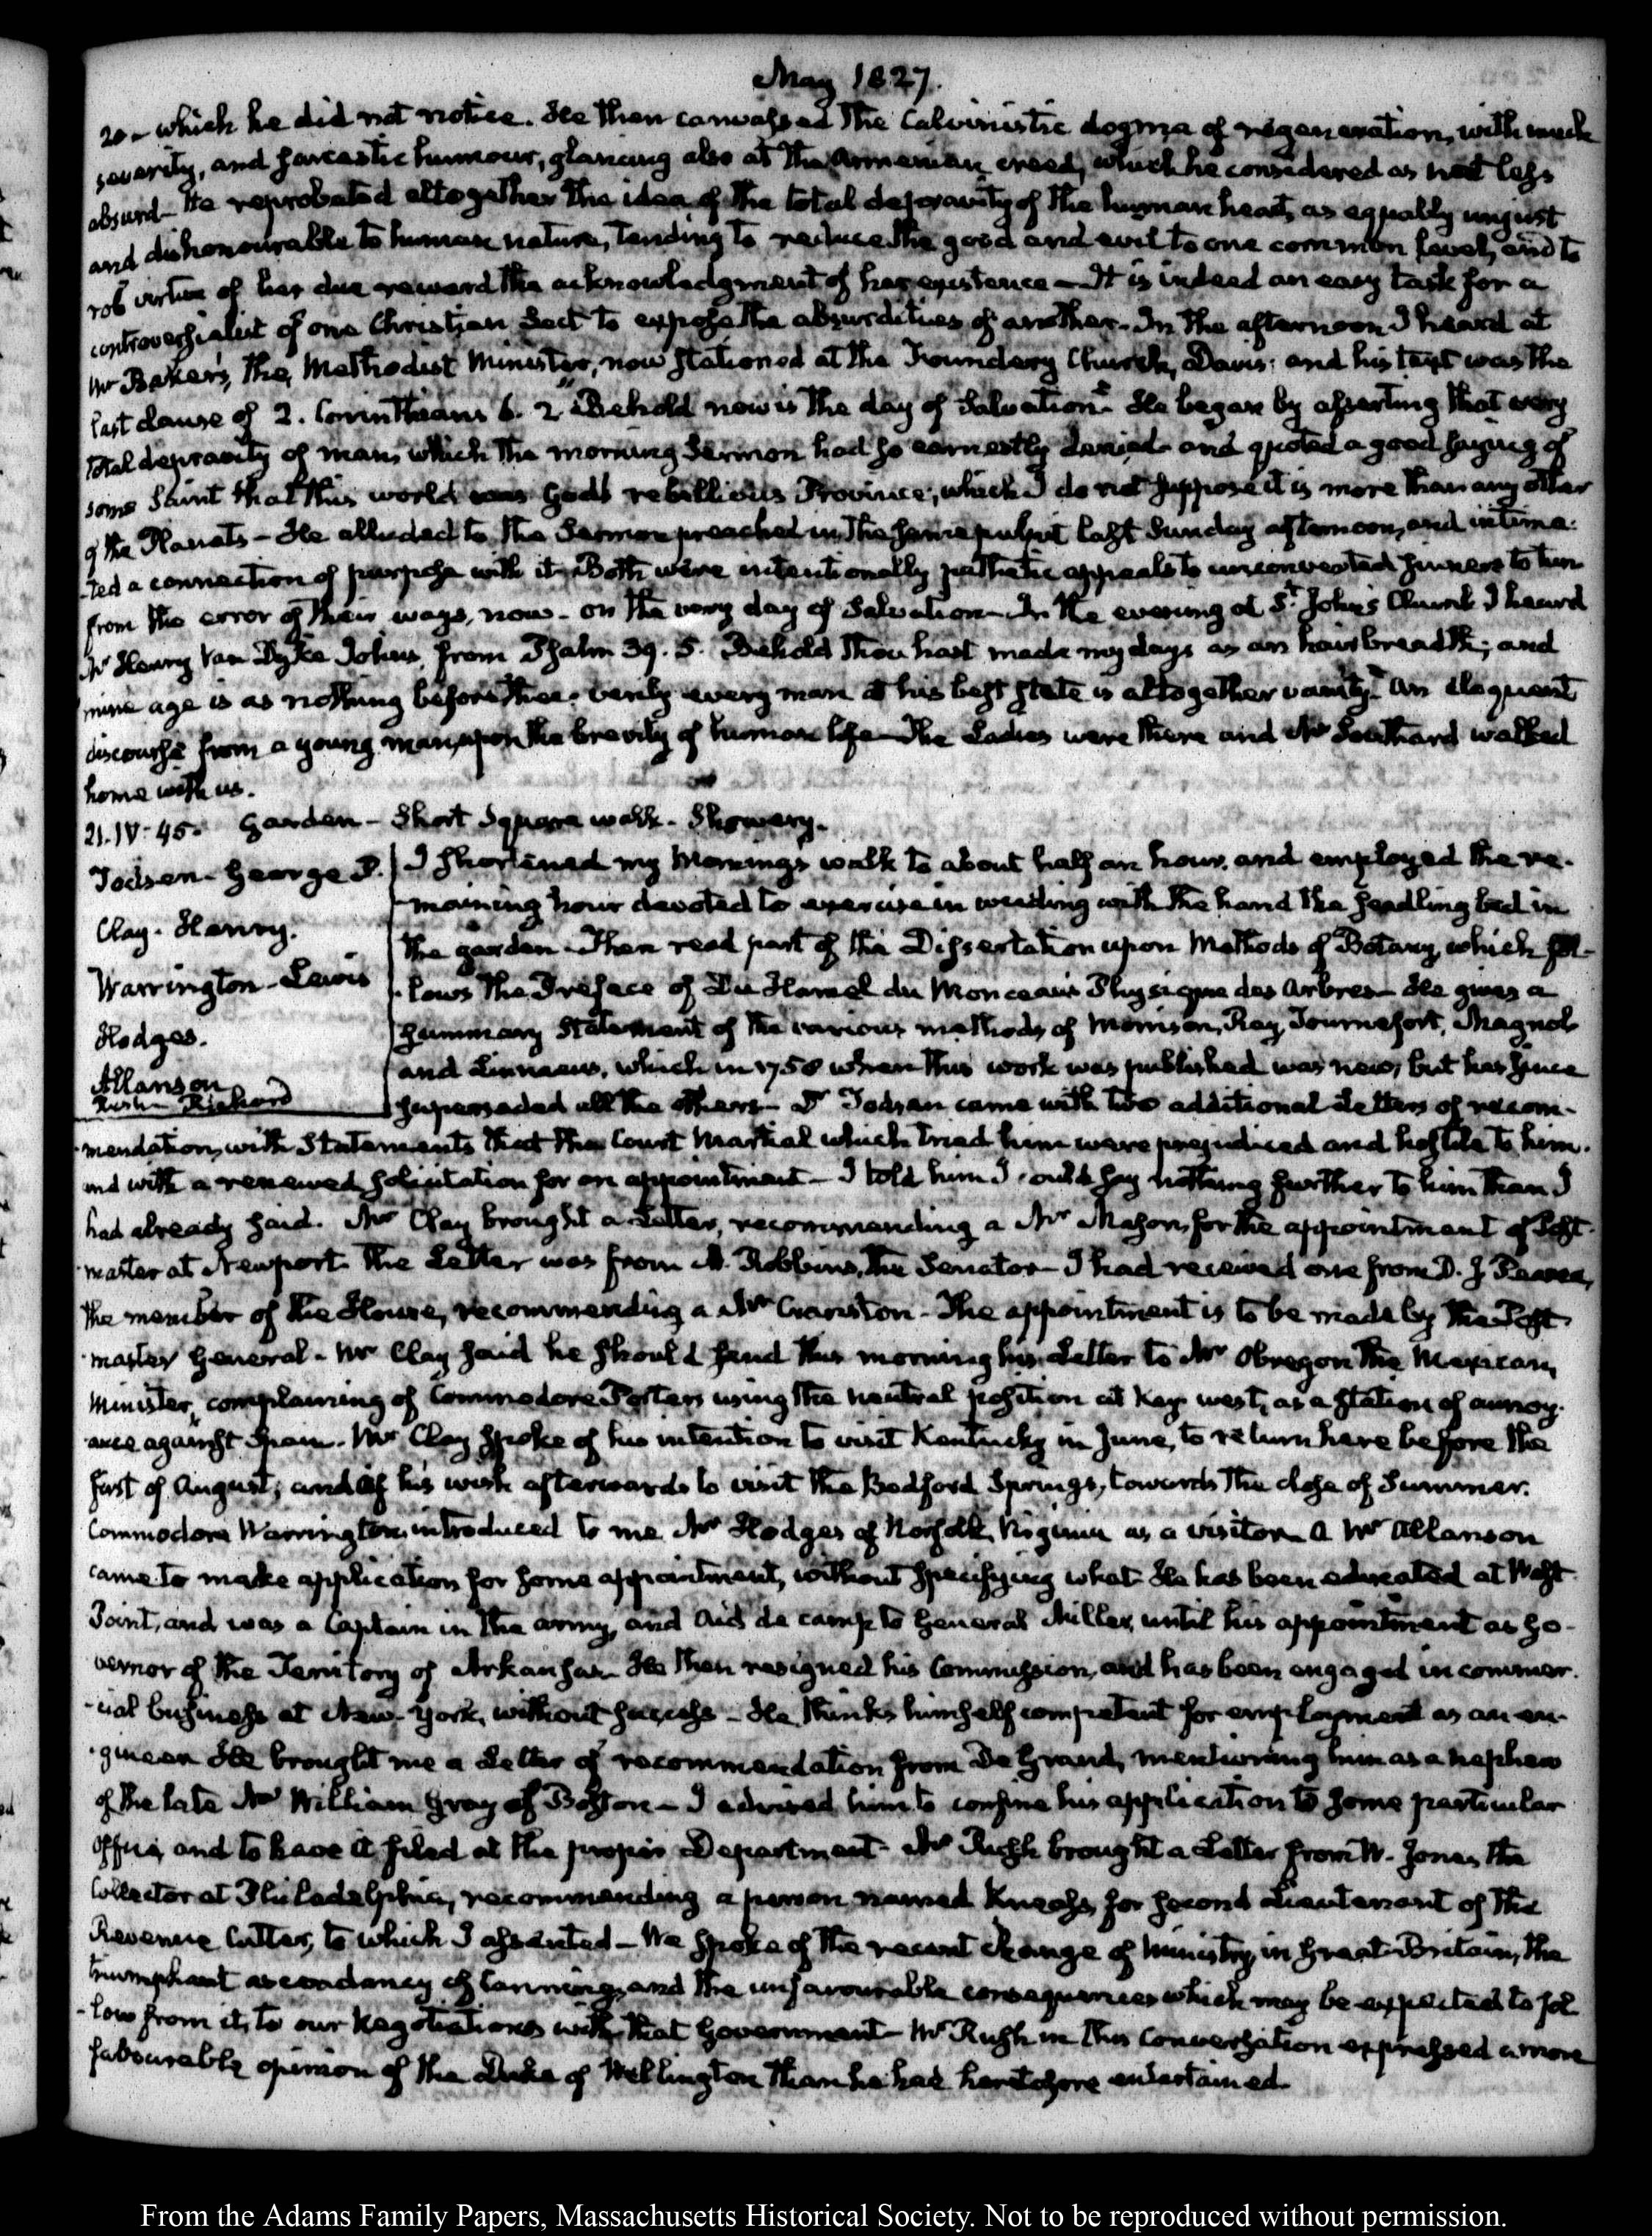 May 1827.
20 - which he did not notice. He then canvassed the Calvinistic dogma of regeneration, with much
severity, and sarcastic humour, glancing also at the Armenian creed, which he considered as not less
absurd - He reprobated altogether the idea of the total depravity of the human heart, as equally unjust
and dishonourable to human nature, tending to reduce the good and evil to one common level, and to
rob virtue of her due reward the acknowledgment of her existence - It is indeed an easy task for a
controversialist of one Christian Sect to expose the absurdities of another - In the afternoon I heard at
Mr Baker's, the Methodist Minister, now stationed at the Foundery Church, Davis; and his text was the
last clause of 2. Corinthians 6. 2 "Behold now is the day of Salvation." He began by asserting that very
total depravity of man, which the morning Sermon had so earnestly denied - and quoted a good saying of
some Saint that this world was God's rebellious Province; which I do not suppose it is more than any other
of the Planets - He alluded to the Sermon preached in the same pulpit last Sunday afternoon, and intima-
-ted a connection of purpose with it - Both were intentionally pathetic appeals to unconverted sinners to turn
from the error of their ways, now - on the very day of Salvation - In the evening at St. John's Church I heard
Mr Henry Van Dyke Johns, from Psalm 39. 5. Behold thou hast made my days as an hair breadth; and
mine age is as nothing before thee: verily every man at his best state is altogether vanity." An eloquent
discourse from a young man, upon the brevity of human life - The Ladies were there and Mr Southard walked
home with us.
21. IV: 45. Garden - Short Square walk - Showery.
Todsen - George P.
Clay - Henry.
Warrington - Lewis
Hodges.
Allanson
Rush Richard
I shortened my Morning's walk to about half an hour, and employed the re-
-maining hour devoted to exercise in weeding with the hand the seedling bed in
the garden - Then read part of the Dissertation upon Methods of Botany, which fol-
-lows the Preface of Du Hamel du Monceau's Physique des Arbres - He gives a
summary Statement of the various methods of Morrison, Ray, Tournefort, Magnol
and Linnaeus, which in 1758 when this work was published was new, but has since
superseded all the others - Dr Todsen came with two additional Letters of recom-
-mendation, with Statements that the Court Martial which tried him were prejudiced and hostile to him.
and with a renewed solicitation for an appointment - I told him I could say nothing further to him than I
had already said. Mr Clay brought a Letter, recommending a Mr Mason, for the appointment of Post-
-master at Newport. The Letter was from A. Robbins, the Senator - I had received one from D. J. Pearce,
the member of the House, recommending a Mr Cranston - The appointment is to be made by the Post-
-master General - Mr Clay said he should send this morning his Letter to Mr Obregon the Mexican
Minister, complaining of Commodore Porter's using the neutral position at Key west, as a station of annoy-
-ance against Spain. Mr Clay spoke of his intention to visit Kentucky in June, to return here before the
first of August; and of his wish afterwards to visit the Bedford Springs, towards the close of Summer.
Commodore Warrington introduced to me Mr Hodges of Norfolk, Virginia as a visitor - A Mr Allanson
came to make application for some appointment, without specifying what - He has been educated at West-
Point, and was a Captain in the army, and Aid de camp to General Miller, until his appointment as Go-
-vernor of the Territory of Arkansas - He then resigned his Commission, and has been engaged in commer-
-cial business at New-York, without success - He thinks himself competent for employment as an en-
-gineer. He brought me a Letter of recommendation from De Grand, mentioning him as a nephew
of the late Mr William Gray of Boston - I advised him to confine his application to some particular
office, and to have it filed at the proper Department - Mr Rush brought a Letter from W. Jones the
Collector at Philadelphia, recommending a person named Kneass, for second Lieutenant of the
Revenue Cutter, to which I assented - We spoke of the recent change of Ministry in Great-Britain, the
triumphant ascendancy of Canning, and the unfavourable consequences which may be expected to fol-
-low from it, to our Negotiations with that Government - Mr Rush in this Conversation expressed a more
favourable opinion of the Duke of Wellington than he had heretofore entertained.
From the Adams Family Papers, Massachusetts Historical Society. Not to be reproduced without permission.